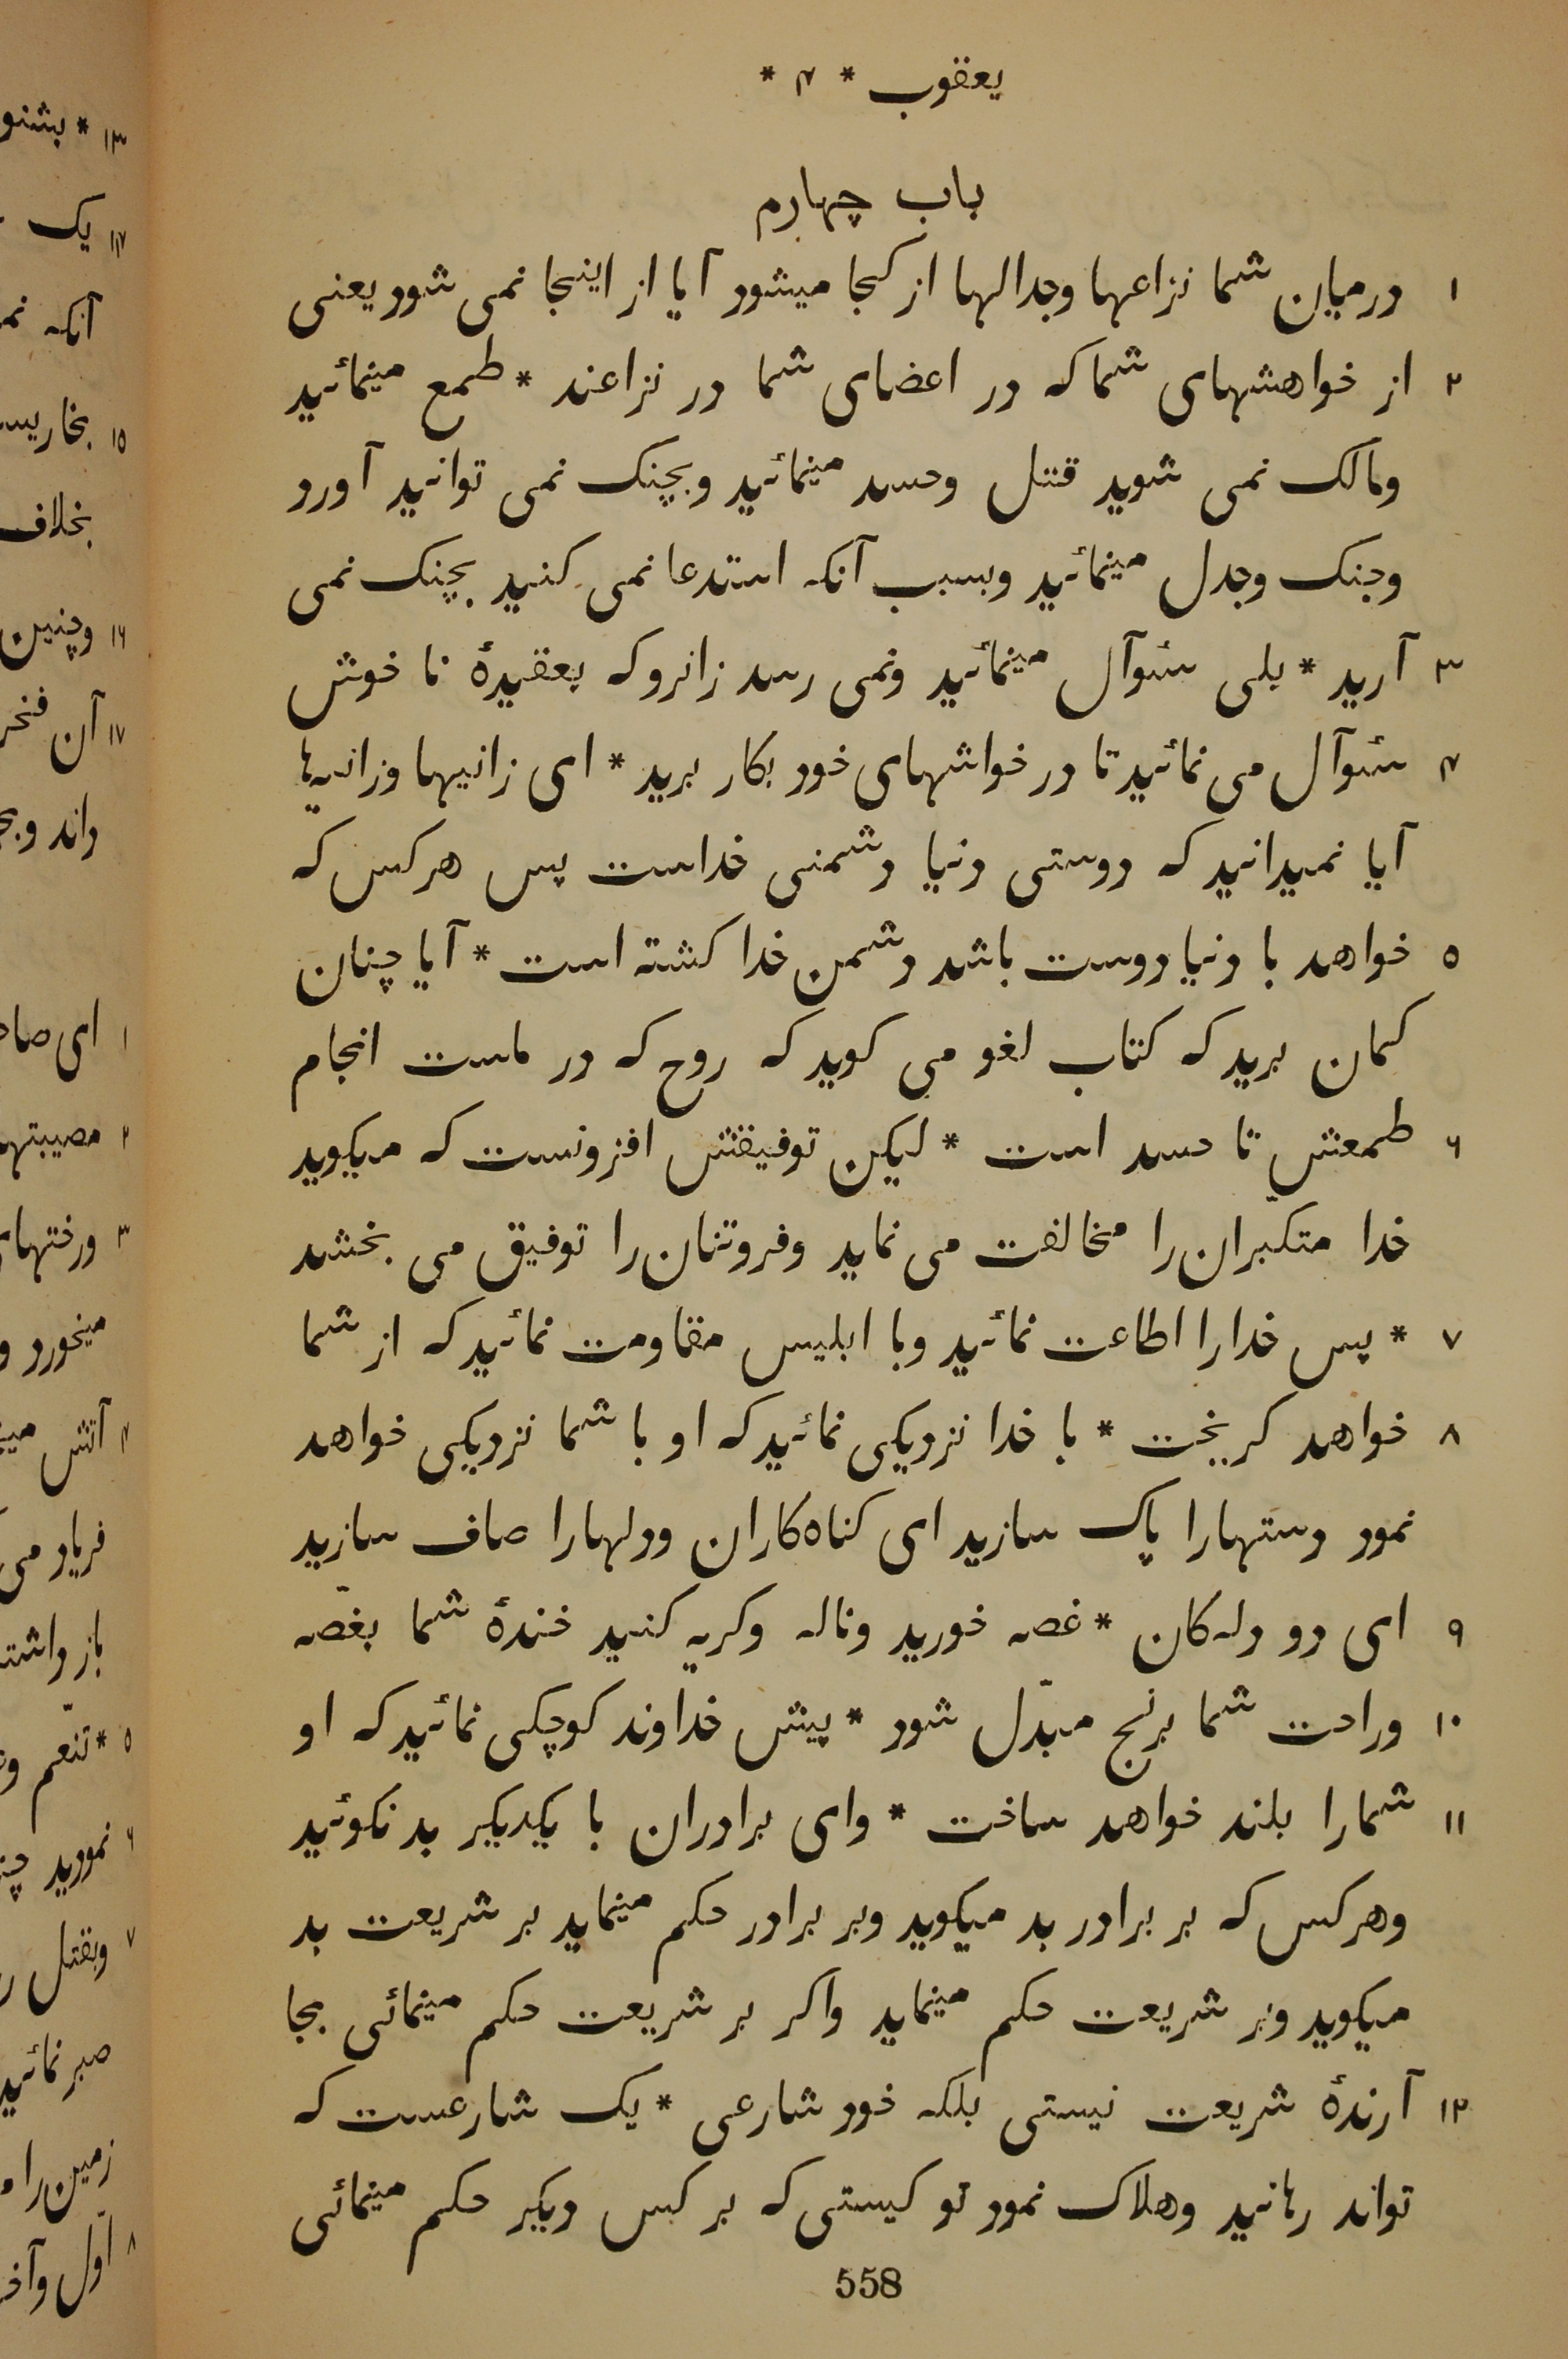 یعقوب * ۴ *
باب چهارم
۱ درمیان شما نزاعها وجدالها از کجا میشود آیا از اینجا نمی شود یعنی
۲ از خواهشهای شما که در اعضای شما در نزاعند * طمع مینمائید
ومالک نمی شوید قتل وحسد مینمائید وبچنک نمی توانید آورد
وجنک وجدل مینمائید وبسبب آنکه استدعا نمی کنید بچنک نمی
۳ آرید * بلی سئوآل مینمائید ونمی رسد زانروکه بعقیدهٔ نا خوش
۴ سئوآل می نمائید تا در خواشهای خود بکار برید * ای زانیها وزانیه‌ها
آیا نمیدانید که دوستی دنیا دشمنی خداست پس هرکس که
۵ خواهد با دنیا دوست باشد دشمن خدا کشته است * آیا چنان
کمان برید که کتاب لغو می کوید که روح که در ماست انجام
۶ طمعش تا حسد است * لیکن توفیقش افزونست که میکوید
خدا متکبّران را مخالفت می نماید وفروتنان را توفیق می بخشد
۷ * پس خدارا اطاعت نمائید وبا ابلیس مقاومت نمائید که از شما
۸ خواهد کریخت * با خدا نزدیکی نمائید که او با شما نزدیکی خواهد
نمود دستهارا پاک سازید ای کناه‌کاران ودلهارا صاف سازید
۹ ای دو دله‌کان * غصه خورید وناله وکریه کنید خندهٔ شما بغصّه
۱۰ وراحت شما برنج مبدّل شود * پیش خداوند کوچکی نمائید که او
۱۱ شمارا بلند خواهد ساخت * وای برادران با یکدیکر بد نکوئید
وهرکس که بر برادر بد میکوید وبر برادر حکم مینماید بر شریعت بد
میکوید وبر شریعت حکم مینماید واکر بر شریعت حکم مینمائی بجا
۱۲ آرندهٔ شریعت نیستی بلکه خود شارعی * یک شارعست که
تواند رهانید وهلاک نمود تو کیستی که بر کس دیکر حکم مینمائی
558
۱۳ * بشنو
۱۴ یک
آنکه
۱۵ بخاریست
بخلاف
۱۶ وچنین
۱۷ آن فخر
داند
۱ ای
۲
۳ درختهای
میخورد و
۴ آتش
فریاد می
باز داشته
۵ * تنعّم
۶ نمودید
۷ وبقتل
صبر نمائید
زمین را
۸ اوّل وآخر